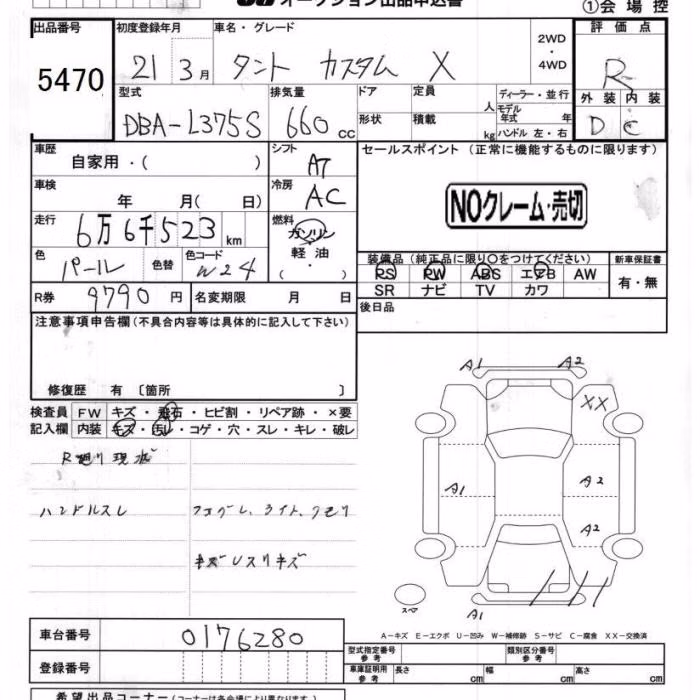 オークション出品申込書
①会場控
出品番号 初度登録年月 車名・グレード 2WD・4WD 評価点
5470 21 3月 タント カスタム X R
型式 排気量 ドア 定員 人 ディーラー・並行 外装 内装
DBA-L375S 660cc 形状 積載 kg モデル年式 年 ハンドル 左・右 D C
車歴 自家用・( ) シフト AT セールスポイント (正常に機能するものに限ります)
車検 年 月( 日) 冷房 AC NOクレーム・売切
走行 6万6千523km 燃料 ガソリン 軽油 ( ・ )
色 パール 色替 色コード W24 装備品(純正品に限り○をつけてください) 新車保証書
PS PW ABS エアB AW 有・無
SR ナビ TV カワ
R券 9790円 名変期限 月 日 後日品
注意事項申告欄(不具合内容等は具体的に記入して下さい)
修復歴 有 〔箇所 〕
検査員 FW キズ・飛石・ヒビ割・リペア跡・×要
記入欄 内装 キズ・汚レ・コゲ・穴・スレ・キレ・破レ
R廻り現状
ハンドルスレ フォグレ、ライト、クモリ
キズUスリキズ
A1 A2
XX
A1 A2
A2
A1
スペア
A-キズ E-エクボ U-凹み W-補修跡 S-サビ C-腐食 XX-交換済
車台番号 0176280 型式指定番号 参考 類別区分番号 参考
登録番号 車庫証明用 参考 長さ cm 幅 cm 高さ cm
希望出品コーナー (コーナーは各会場により異なります。)